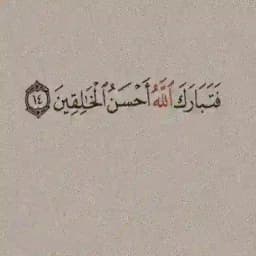 فَتَبَارَكَ ٱللَّهُ أَحْسَنُ ٱلْخَـٰلِقِينَ ١٤